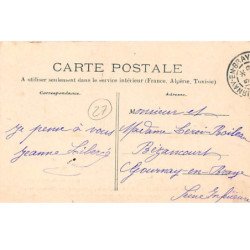 CARTE POSTALE
A utiliser seulement dans le service intérieur (France, Algérie, Tunisie)
Correspondance.
Adresse.
27
je pense à vous
Jeanne
Monsieur et
Madame Leroi
Bézancourt
Gournay-en-Bray
Seine Inférieure